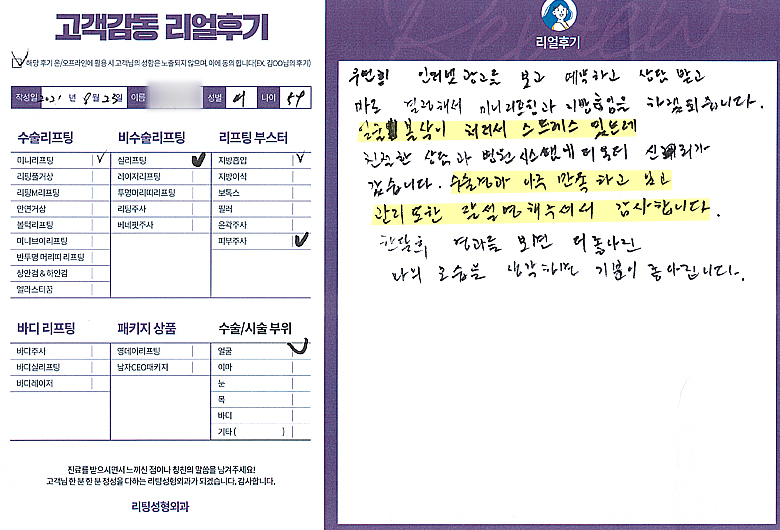 고객감동 리얼후기
해당 후기 온/오프라인에 활용 시 고객님의 성함은 노출되지 않으며, 이에 동의 합니다(EX. 김OO님의 후기)
작성일 2021 년 8월 25일 이름 성별 여 나이 54
수술리프팅 비수술리프팅 리프팅 부스터
미니리프팅 ✓ 실리프팅 ✓ 지방흡입 ✓
리팅풀거상 레이저리프팅 지방이식
리팅M리프팅 투명머리띠리프팅 보톡스
안면거상 리팅주사 필러
볼턱리프팅 베네핏주사 윤곽주사
미니브이리프팅 피부주사 ✓
반투명 머리띠 리프팅
상안검&하안검
엘라스티꿈
바디 리프팅 패키지 상품 수술/시술 부위
바디주사 영데이리프팅 얼굴 ✓
바디실리프팅 남자CEO패키지 이마
바디레이저 눈
목
바디
기타 ( )
진료를 받으시면서 느끼신 점이나 칭찬의 말씀을 남겨주세요!
고객님 한 분 한 분 정성을 다하는 리팅성형외과가 되겠습니다. 감사합니다.
리팅성형외과
리얼후기
우연히 인터넷 광고를 보고 예약하고 상담 받고
바로 결정해서 미니리프팅과 지방흡입을 하게되었습니다.
얼굴 볼살이 처져서 스트레스 였는데
친절한 상담과 병원 시스템에 더욱더 신뢰가
갔습니다. 수술결과 아주 만족 하고 있고
관리 또한 잘 설명해주셔서 감사합니다.
한달후 경과를 보면 더 좋아진
나의 모습을 생각하면 기분이 좋아집니다.